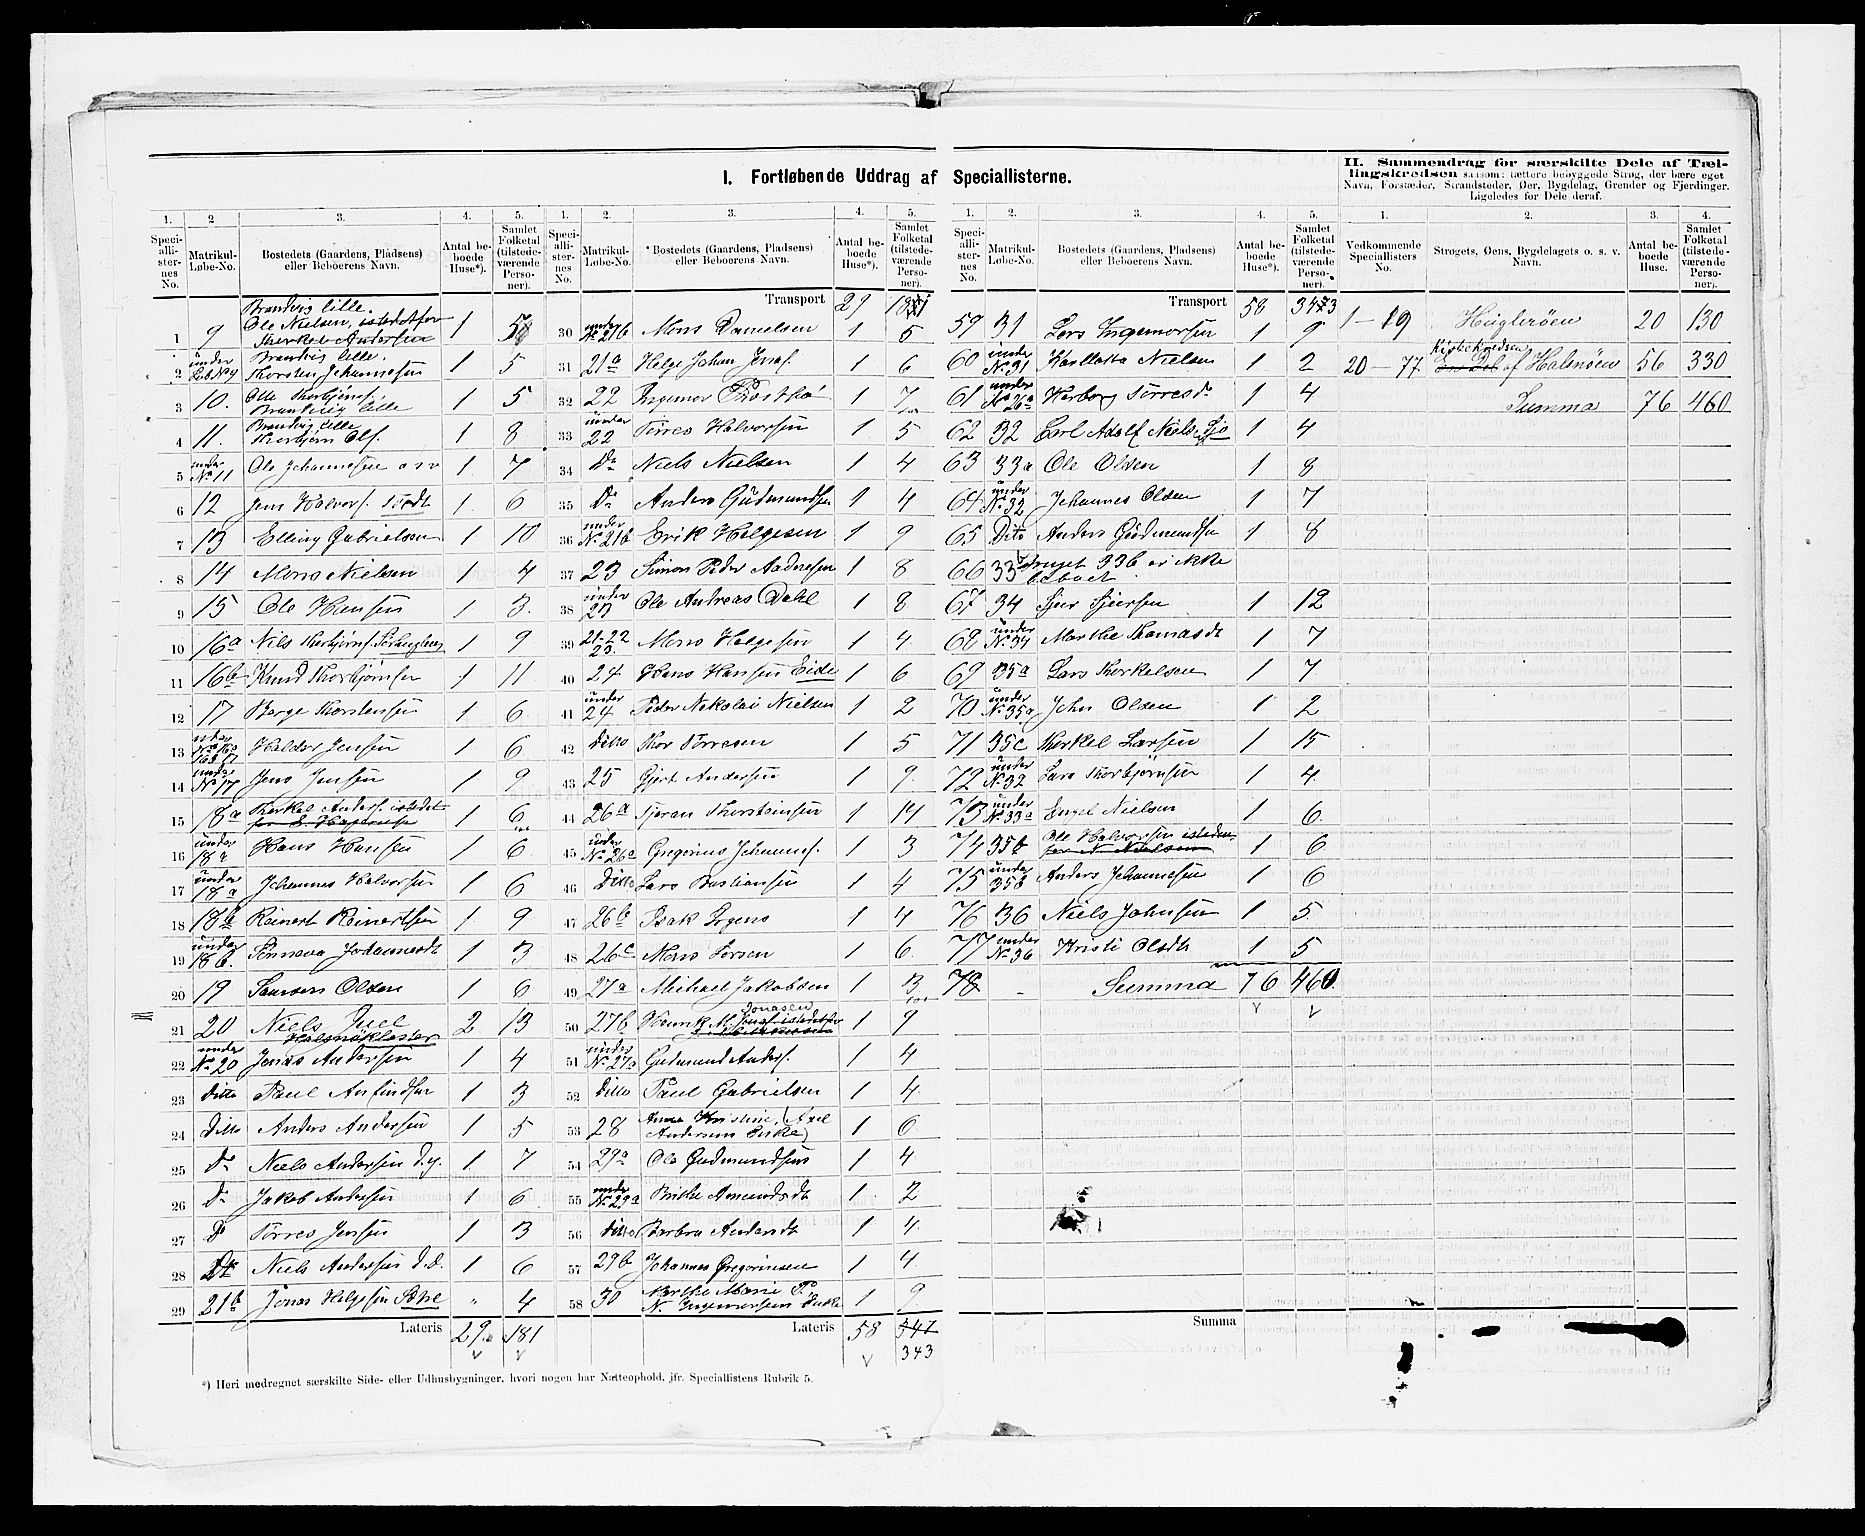 I. Fortløbende Uddrag af Speciallisterne.
II. Sammendrag for særskilte Dele af Tæl-
lingskredsen saasom: tættere bebyggede Strøg, der bære eget
Navn, Forstæder, Strandsteder, Øer, Bygdelag, Grender og Fjerdinger.
Ligeledes for Dele deraf.
1. 2 3. 4. 5.
Speci-alli-ster-nes No. Matrikul-Løbe-No. Bostedets (Gaardens, Pladsens) eller Beboerens Navn. Antal be-boede Huse*). Samlet Folketal (tilstede-værende Perso-ner).
Brandvig lille.
1 9 Ole Nielsen, istedetfor Therkel Andersen 1 5
2 under Brandvig lille. Thorsten Johannesen 1 5
3 10. Olle Thorbjørns. Brandvig lille 1 5
4 11. Brandvig lille Thorbjørn Ols. 1 8
5 under No 11 Ole Johannesen 1 7
6 12 Jens Halvors. 1 6
7 13 Elling Gabrielsen 1 10
8 14 Mons Nielsen 1 4
9 15 Ole Hansen 1 3.
10 16a Nils Thorbjørns. 1 9
11 16b Knud Thorbjørnsen 1 11
12 17 Børge Thorstensen 1 6
13 Haldor Jensen 1 6
14 under No 17 Jens Jensen 1 9
15 18a Therkel Anders. istedet 1 6
16 under 18a Hans Hansen 1 6
17 under 18a Johannes Halvorsen 1 6
18 18b Reinert Reinertsen 1 9
19 under 18b. Johannesdt 1 3
20 19 Samson Olsen 1 6
21 20 Niels Juel Halsnøkloster 2 13
22 under No 20 Jonas Andersen 1 4
23 Ditto Paul Anfindsen 1 3
24 Ditto Anders Andersen 1 5
25 Do Niels Andersen d.y. 1 7
26 Do Jakob Andersen 1 6
27 Do Tørres Jensen 1 3
28 Do Niels Andersen d.æ. 1 6
29 21b Jonas Helgesen " 4
Lateris 29 181
1. 2. 3. 4. 5.
Speci-alli-ster-nes No. Matrikul-Løbe-No. Bostedets (Gaardens, Pladsens) eller Beboerens Navn. Antal be-boede Huse*). Samlet Folketal (tilstede-værende Perso-ner).
Transport 29 181
30 under No 21b Mons Danielsen 1 5
31 21a Helge Johan 1 6
32 22 Ingemor 1 7
33 under 22 Tørres Halvorsen 1 5
34 Do Niels Nielsen 1 4
35 Do Anders Gudmundsen 1 4
36 under No 21b Erik Helgesen 1 9
37 23 Simon Peder Aadnesen 1 8
38 under 23 Ole Andreas Dahl 1 8
39 21-22 23 Mons Helgesen 1 4
40 24 Hans Hansen Eide 1 6
41 under 24 Peder Nikolai Nielsen 1 2
42 Ditto Thor Tørresen 1 5
43 25 Gjert Andersen 1 9.
44 26a Gjeran Thorsteinsen 1 14
45 under No 26a Gregorius Johannes. 1 3
46 Ditto Lars Bastiansen 1 4
47 26b Isak Irgens 1 4
48 26c Mons Larsen 1 6.
49 27a Michael Jakobsen 1 3
50 27b Jonasen 1 9
51 under No 27a Gudmund Anders. 1 4
52 Ditto Paul Gabrielsen 1 4
53 28 Anna Kristine, (Axel Andersens Enke) 1 6
54 29a Ole Gudmundsen 1 4
55 under No 29a Brithe Amundsdt 1 2
56 Ditto Barbra Andersdt 1 4
57 29b Johannes Gregoriusen 1 4
58 30 Marthe Marie P. N. Ingemorsens Enke 1 9
Lateris 58 347
343
1. 2. 3. 4. 5.
Speci-alli-ster-nes No. Matrikul-Løbe-No. Bostedets (Gaardens, Pladsens) eller Beboerens Navn. Antal be-boede Huse*). Samlet Folketal (tilstede-værende Perso-ner).
Transport 58 343
59 31 Lars Ingemorsen 1 9
60 under No 31 Nielsen 1 2
61 under No 26a Herborg Tørresdr 1 4
62 32 Carl Adolf Niels. 1 4
63 33a Ole Olsen 1 8
64 under No 32 Johannes Olsen 1 7
65 Dito Anders Gudmundsen 1 8
66 33 Bruget 33b er ikke beboet.
67 34 Sjur Sjursen 1 12
68 under No 34 Marthe Thomasdt 1 7
69 35a Lars Therkelsen 1 7.
70 under No 35a John Olsen 1 2
71 35c Therkel Larsen 1 15
72 under No 32 Lars Thorbjørnsen 1 4.
73 under No 33a Engel Nielsen 1 6.
74 35b Ole Halvorsen isteden for N. Nielsen 1 6
75 under 35b Anders Johannesen 1 6
76 36 Niels Johnsen 1 5.
77 under No 36 Kristi Olsdt 1 5
78 - Summa 76 460.
Summa
1. 2. 3. 4.
Vedkommende Speciallisters No. Strøgets, Øens, Bygdelagets o. s. v. Navn. Antal be-boede Huse. Samlet Folketal (tilstede-værende Perso-ner).
1 - 19 Huglerøen 20 130
20 - 77. af Halsnøen 56 330
Summa 76 460
*) Heri medregnet særskilte Side- eller Udhusbygninger, hvori nogen har Natteophold, jfr. Speciallistens Rubrik 5.